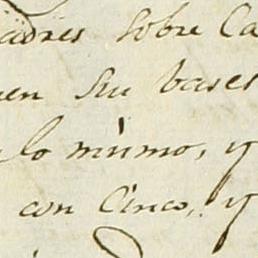 adres sobre Ca
en su bases
lo mismo, y
con Cinco, y